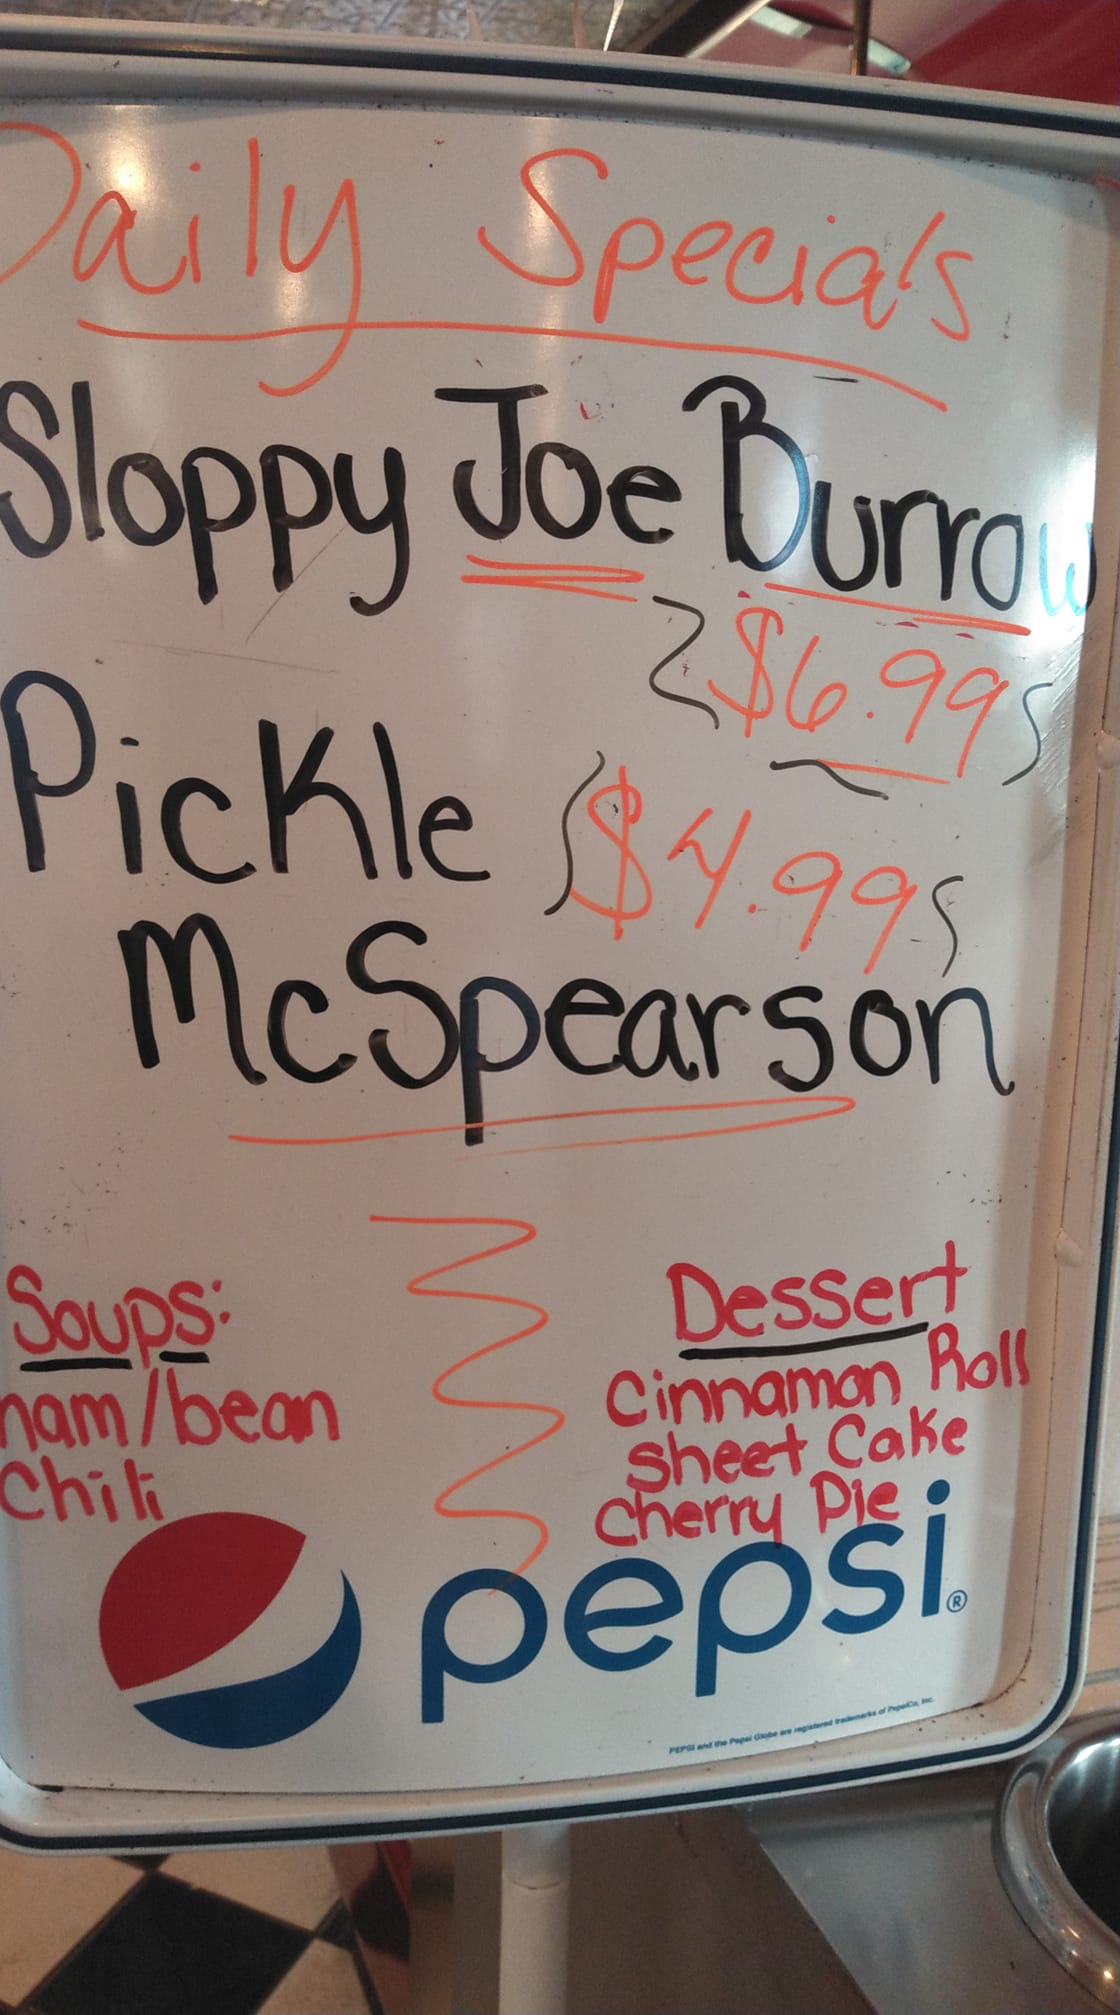 Daily Specials
Sloppy Joe Burrow
$6.99
Pickle $4.99
McSpearson
Soups:
ham/bean
Chili
Dessert
Cinnamon Roll
Sheet Cake
Cherry Pie
pepsi®
PEPSI and the Pepsi Globe are registered trademarks of PepsiCo, Inc.